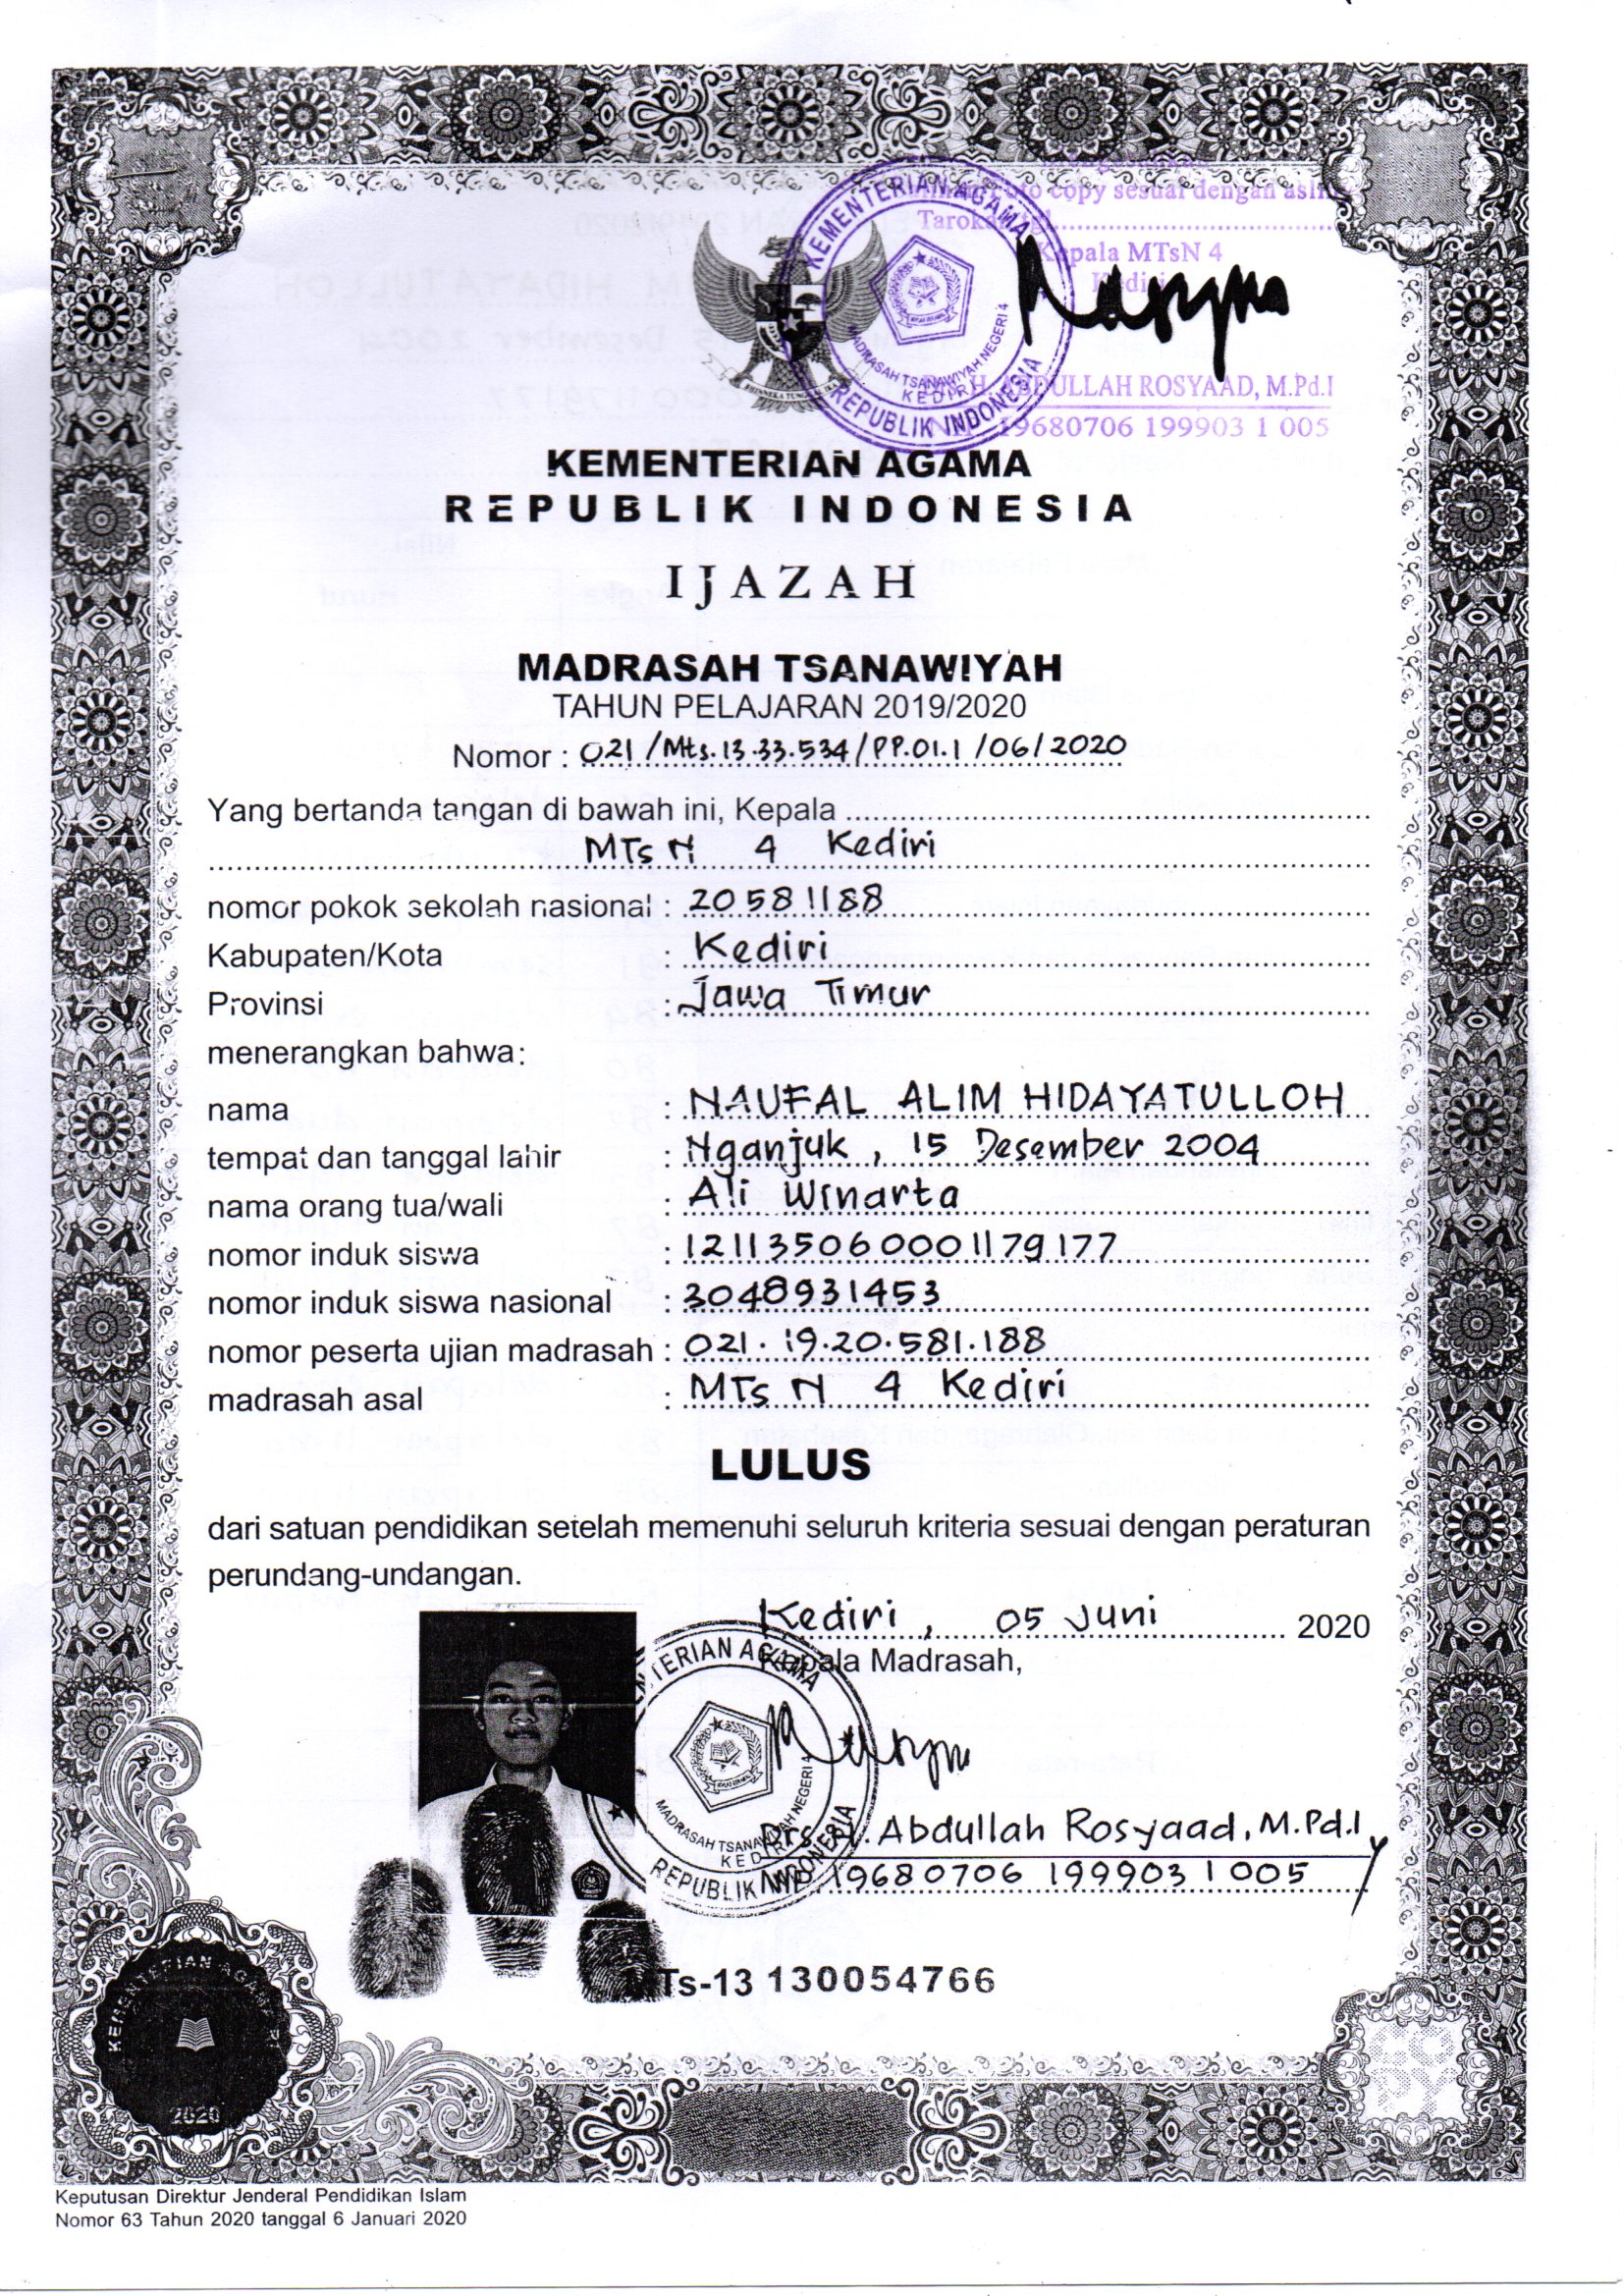 Mengesahkan
foto copy sesuai dengan aslinya
Tarokan, tgl.
Kepala MTsN 4
Kediri
KEMENTERIAN AGAMA
MADRASAH TSANAWIYAH NEGERI 4
KEDIRI
REPUBLIK INDONESIA
H. ABDULLAH ROSYAAD, M.Pd.I
19680706 199903 1 005
KEMENTERIAN AGAMA
REPUBLIK INDONESIA
IJAZAH
MADRASAH TSANAWIYAH
TAHUN PELAJARAN 2019/2020
Nomor : 021/Mts.13.33.534/PP.01.1/06/2020
Yang bertanda tangan di bawah ini, Kepala
MTs N 4 Kediri
nomor pokok sekolah nasional : 20581188
Kabupaten/Kota : Kediri
Provinsi : Jawa Timur
menerangkan bahwa:
nama : NAUFAL ALIM HIDAYATULLOH
tempat dan tanggal lahir : Nganjuk, 15 Desember 2004
nama orang tua/wali : Ali Winarta
nomor induk siswa : 121135060001179177
nomor induk siswa nasional : 3048931453
nomor peserta ujian madrasah : 021.19.20.581.188
madrasah asal : MTs N 4 Kediri
LULUS
dari satuan pendidikan setelah memenuhi seluruh kriteria sesuai dengan peraturan
perundang-undangan.
Kediri, 05 Juni 2020
Kepala Madrasah,
KEMENTERIAN AGAMA
MADRASAH TSANAWIYAH NEGERI 4
KEDIRI
REPUBLIK INDONESIA
Drs. H. Abdullah Rosyaad, M.Pd.I
NIP. 19680706 199903 1 005
Ts-13 130054766
KEMENTERIAN AGAMA
2020
Keputusan Direktur Jenderal Pendidikan Islam
Nomor 63 Tahun 2020 tanggal 6 Januari 2020